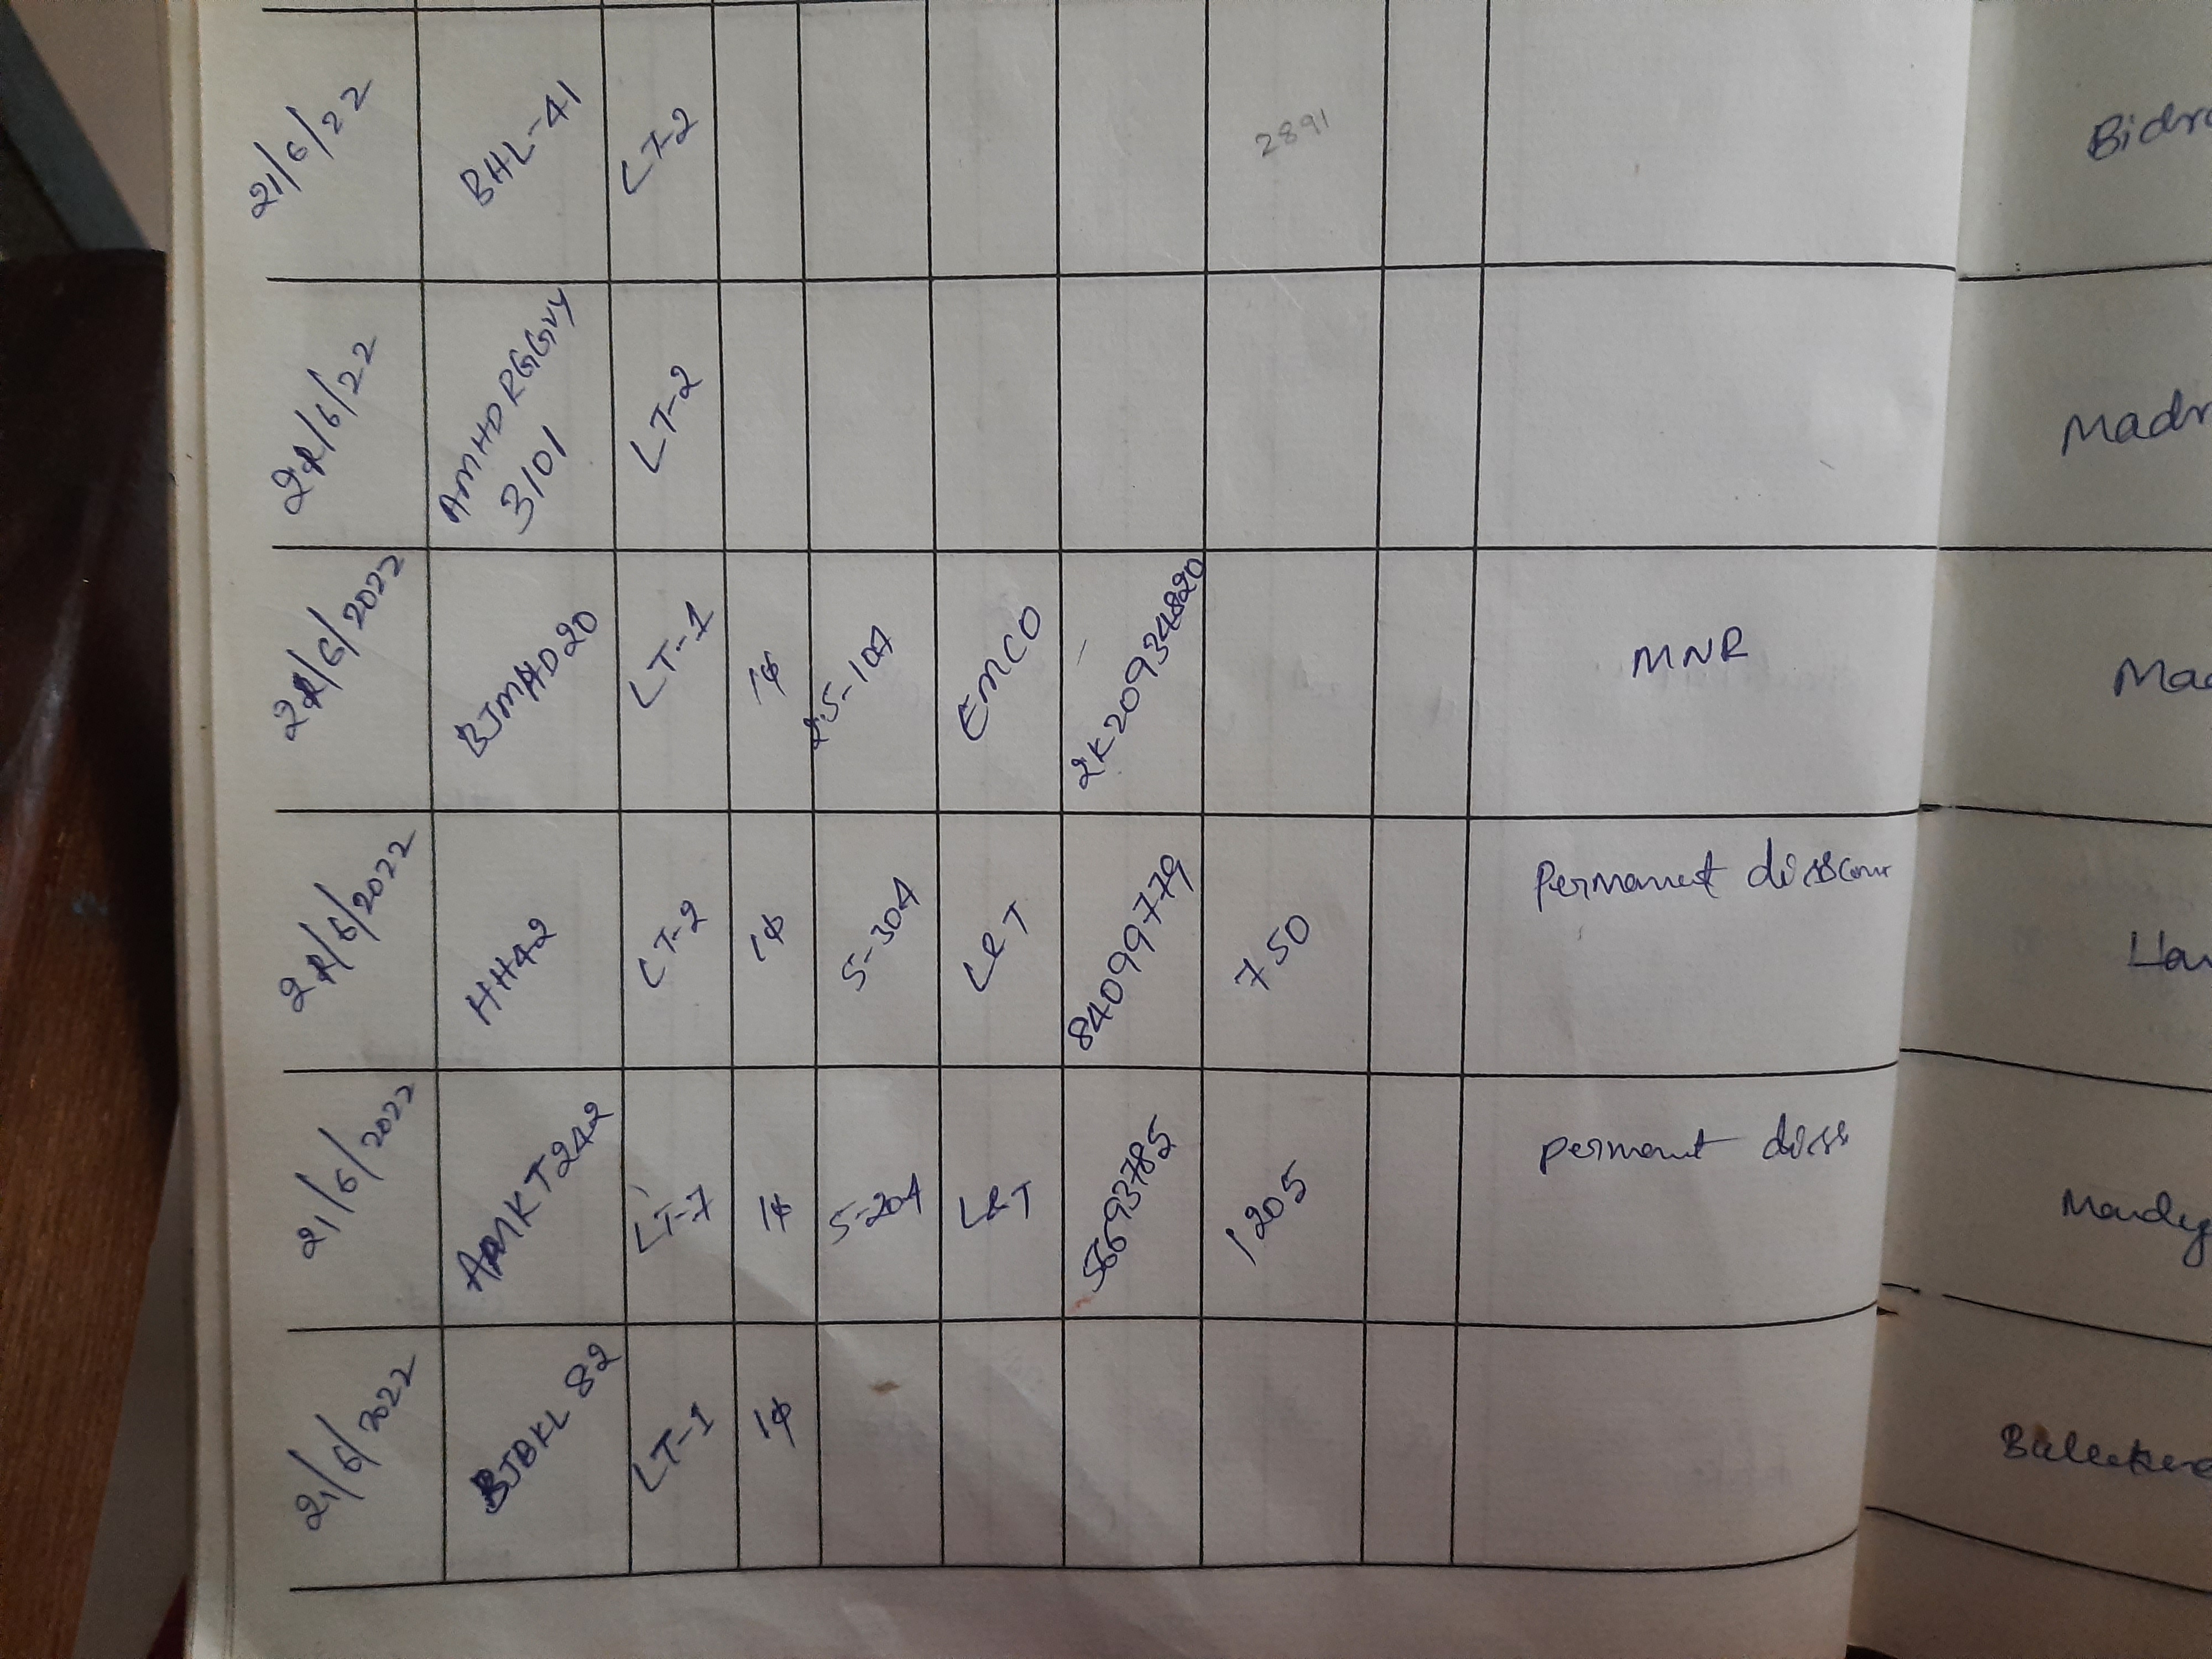 21/6/22 BHL-41 LT-2 2891
21/6/22 AMHDRGGVY LT-2
3101
21/6/2022 BJMHD20 LT-1 1φ 2.5-10A EMCO 2K209934820 MNR
21/6/2022 HH42 LT-2 1φ 5-30A L&T 84099779 750 Permanent disscon
21/6/2022 AMKT242 LT-7 1φ 5-20A L&T 56693785 1205 permant diss
21/6/2022 BJBKL 82 LT-1 1φ